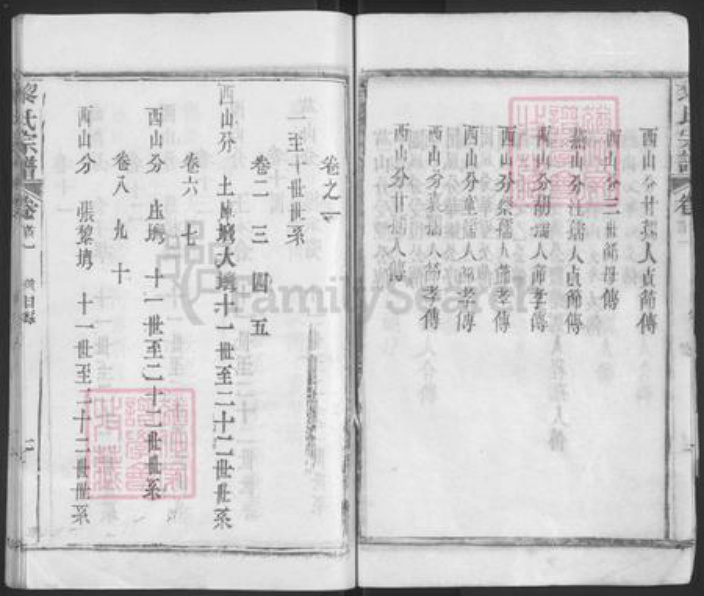 西山分甘孺人貞節傳
西山分三世節母傳
西山分汪孺人貞節傳
西山分胡孺人節孝傳
西山分孺人節孝傳
西山分孺人節孝傳
西山分孺人節孝傳
西山分甘孺人傳
黎氏宗譜
卷之一
一至十世世系
卷二 三 四 五
西山分 土庫塆大塆十一世至二十二世世系
卷六 七
西山分 塆 十一世至二十二世世系
卷八 九 十
西山分 張黎塆 十一世至二十二世世系
黎氏宗譜 卷首一 目錄 二
FamilySearch